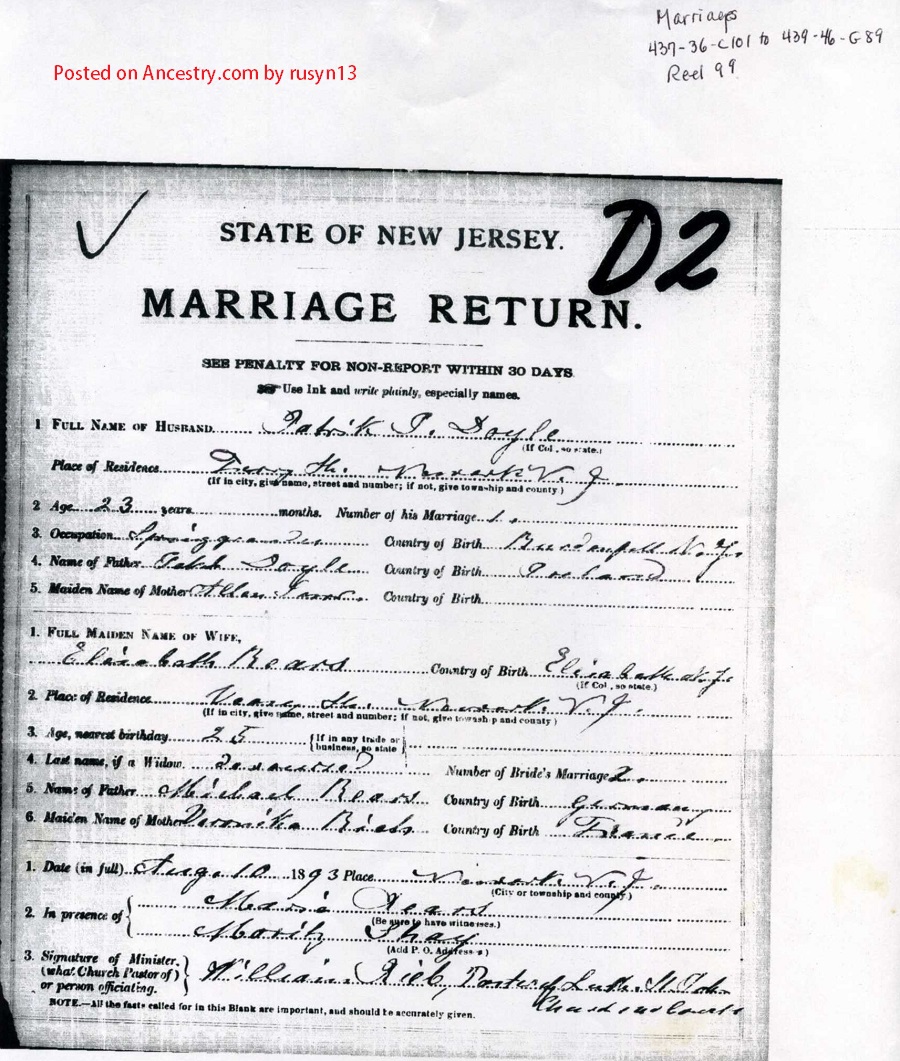 Marriages
437-36-C101 to 439-46-G89
Reel 99
Posted on Ancestry.com by rusyn13
D2
STATE OF NEW JERSEY.
MARRIAGE RETURN.
SEE PENALTY FOR NON-REPORT WITHIN 30 DAYS.
Use Ink and write plainly, especially names.
1 FULL NAME OF HUSBAND Patrik P. Doyle
(If Col., so state.)
Place of Residence Newark N. J.
(If in city, give name, street and number; if not, give township and county)
2 Age 23 years months. Number of his Marriage 1.
3. Occupation Country of Birth N. J.
4. Name of Father Doyle Country of Birth Ireland
5. Maiden Name of Mother Country of Birth
1. FULL MAIDEN NAME OF WIFE,
Elisabeth Rears Country of Birth Elisabeth N. J.
(If Col., so state.)
2. Place of Residence Newark N. J.
(If in city, give name, street and number; if not, give township and county)
3. Age, nearest birthday 25 {If in any trade or business, so state
4. Last name, if a Widow Number of Bride's Marriage 2.
5. Name of Father Michael Rears Country of Birth German
6. Maiden Name of Mother Veronika Country of Birth France
1. Date (in full) Aug. 10 1893 Place Newark N. J.
(City or township and county)
2. In presence of { Marie Rears
(Be sure to have witnesses.)
Moritz
(Add P. O. Address s)
3. Signature of Minister, (what Church Pastor of) or person officiating. } William Rieb, Pastor of Luth. St. Joh.
NOTE.—All the facts called for in this Blank are important, and should be accurately given.